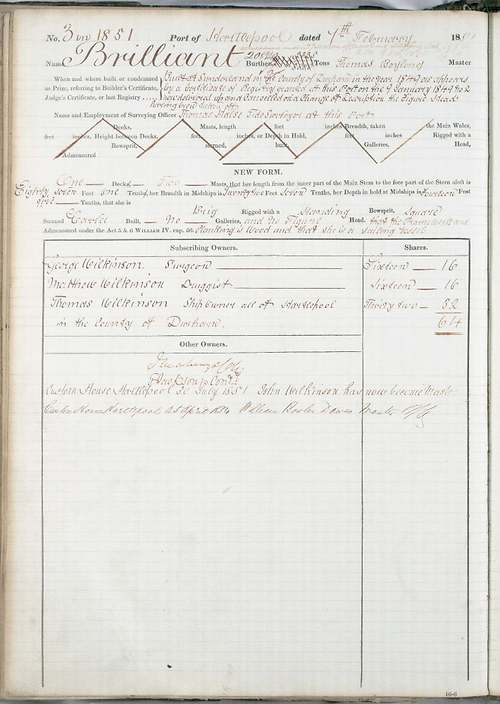 No. 3 in 1851 Port of Hartlepool dated 7th February 1851
Name Brilliant Burthen Tons Thomas Master
When and where built or condemned as Prize, referring to Builder's Certificate, Judge's Certificate, or last Registry
Built at Sunderland in the County of Durham in the year as appears
by a certificate of Registry granted at this Port on the 9 January 1849 No 2
now delivered up and Cancelled on a Change of Description the Figure Head
having been taken off
Name and Employment of Surveying Officer Thomas Tide Surveyor at this Port
Decks, Masts, length feet inches Breadth, taken the Main Wales,
feet inches, Height between Decks, feet inches, or Depth in Hold, feet inches Rigged with a
Bowsprit, sterned, built, Galleries, Head,
Admeasured
NEW FORM.
One Decks, Two Masts, that her length from the inner part of the Main Stem to the fore part of the Stern aloft is
Eighty seven Feet one Tenths, her Breadth in Midships is Twenty two Feet Seven Tenths, her Depth in hold at Midships is Fourteen Feet
five Tenths, That she is Brig Rigged with a Standing Bowsprit, Square
Sterned Carvel Built, no Galleries, and no Figure Head. that the Framework and
Admeasured under the Act 5 & 6 WILLIAM IV. cap. 56. Planking is Wood and that she is a sailing vessel
Subscribing Owners. Shares.
George Wilkinson. Surgeon Sixteen 16
Matthew Wilkinson Druggist Sixteen 16
Thomas Wilkinson Ship Owner all of Hartlepool Thirty two 32
in the County of Durham. 64
Other Owners.
Custom House Hartlepool 30 July 1851 John Wilkinson has now become Master
Custom House Hartlepool April William Dawes Master
16-6